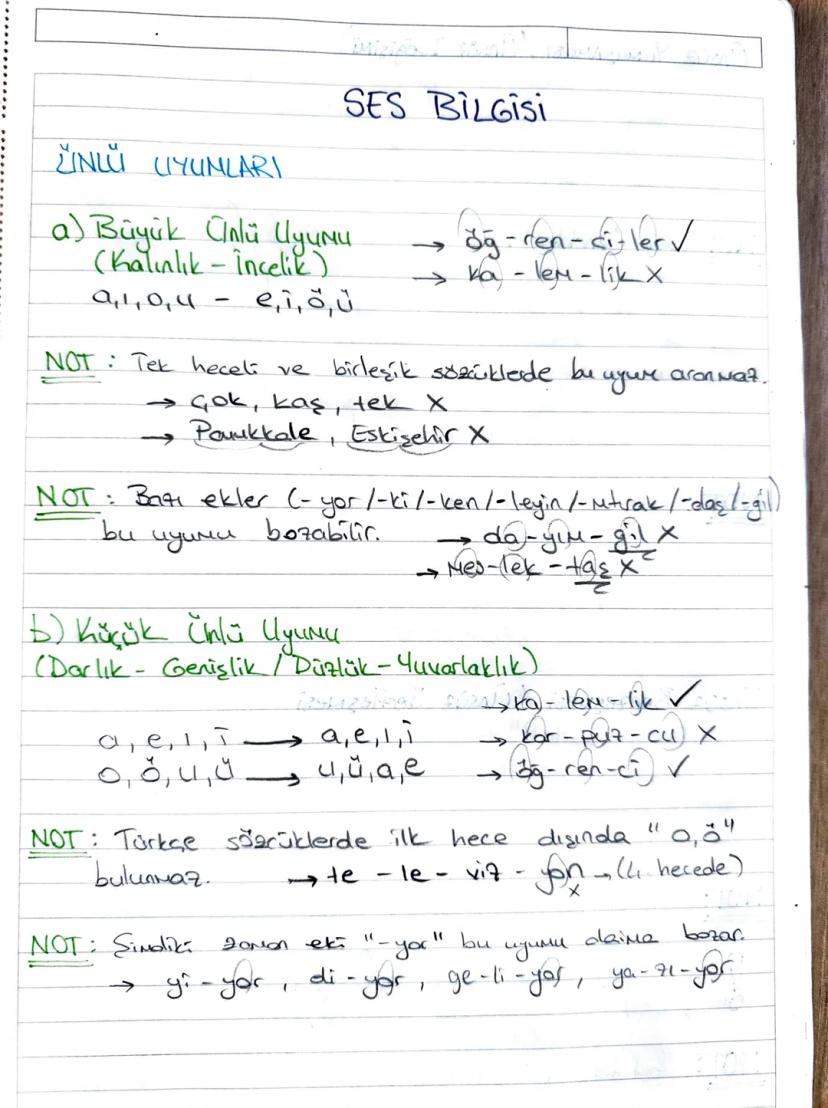 SES BİLGİSİ
ÜNLÜ UYUMLARI
a) Büyük Ünlü Uyumu → öğ-ren-ci-ler ✓
(Kalınlık - İncelik) → ka - lem - lik X
a,ı,o,u - e,i,ö,ü
NOT : Tek heceli ve birleşik sözcüklerde bu uyum aranmaz.
→ çok, kaş, tek X
→ Pamukkale, Eskişehir X
NOT : Bazı ekler (-yor/-ki/-ken/-leyin/-mtırak/-daş/-gil)
bu uyumu bozabilir. → da-yım-gil X
→ mes-lek-taş X
b) Küçük Ünlü Uyumu
(Darlık - Genişlik / Düzlük-Yuvarlaklık)
→ ka - lem - lik ✓
a, e, ı, i → a,e,ı,i → kar - puz - cu X
o, ö, u, ü → u,ü,a,e → öğ-ren-ci ✓
NOT : Türkçe sözcüklerde ilk hece dışında "o,ö"
bulunmaz. → te - le - viz - yon → (4. hecede)
x
NOT : Şimdiki zaman eki "-yor" bu uyumu daima bozar.
→ yi-yor, di-yor, ge-li-yor, ya-zı-yor